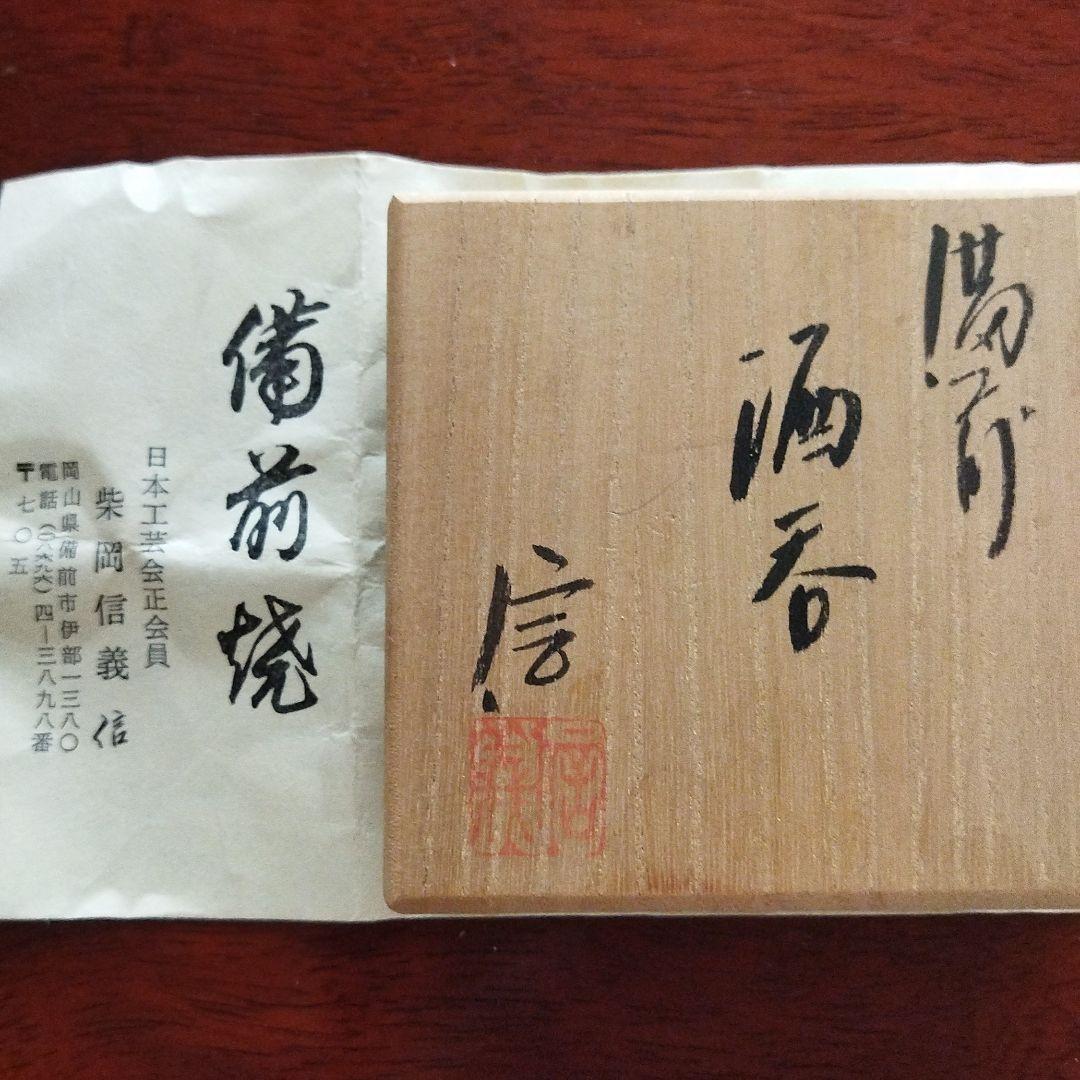 備前
酒呑
信
備前焼
日本工芸会正会員
柴岡信義 信
岡山県備前市伊部一三八〇
電話(〇八六九六)四―三八九八番
〒七〇五